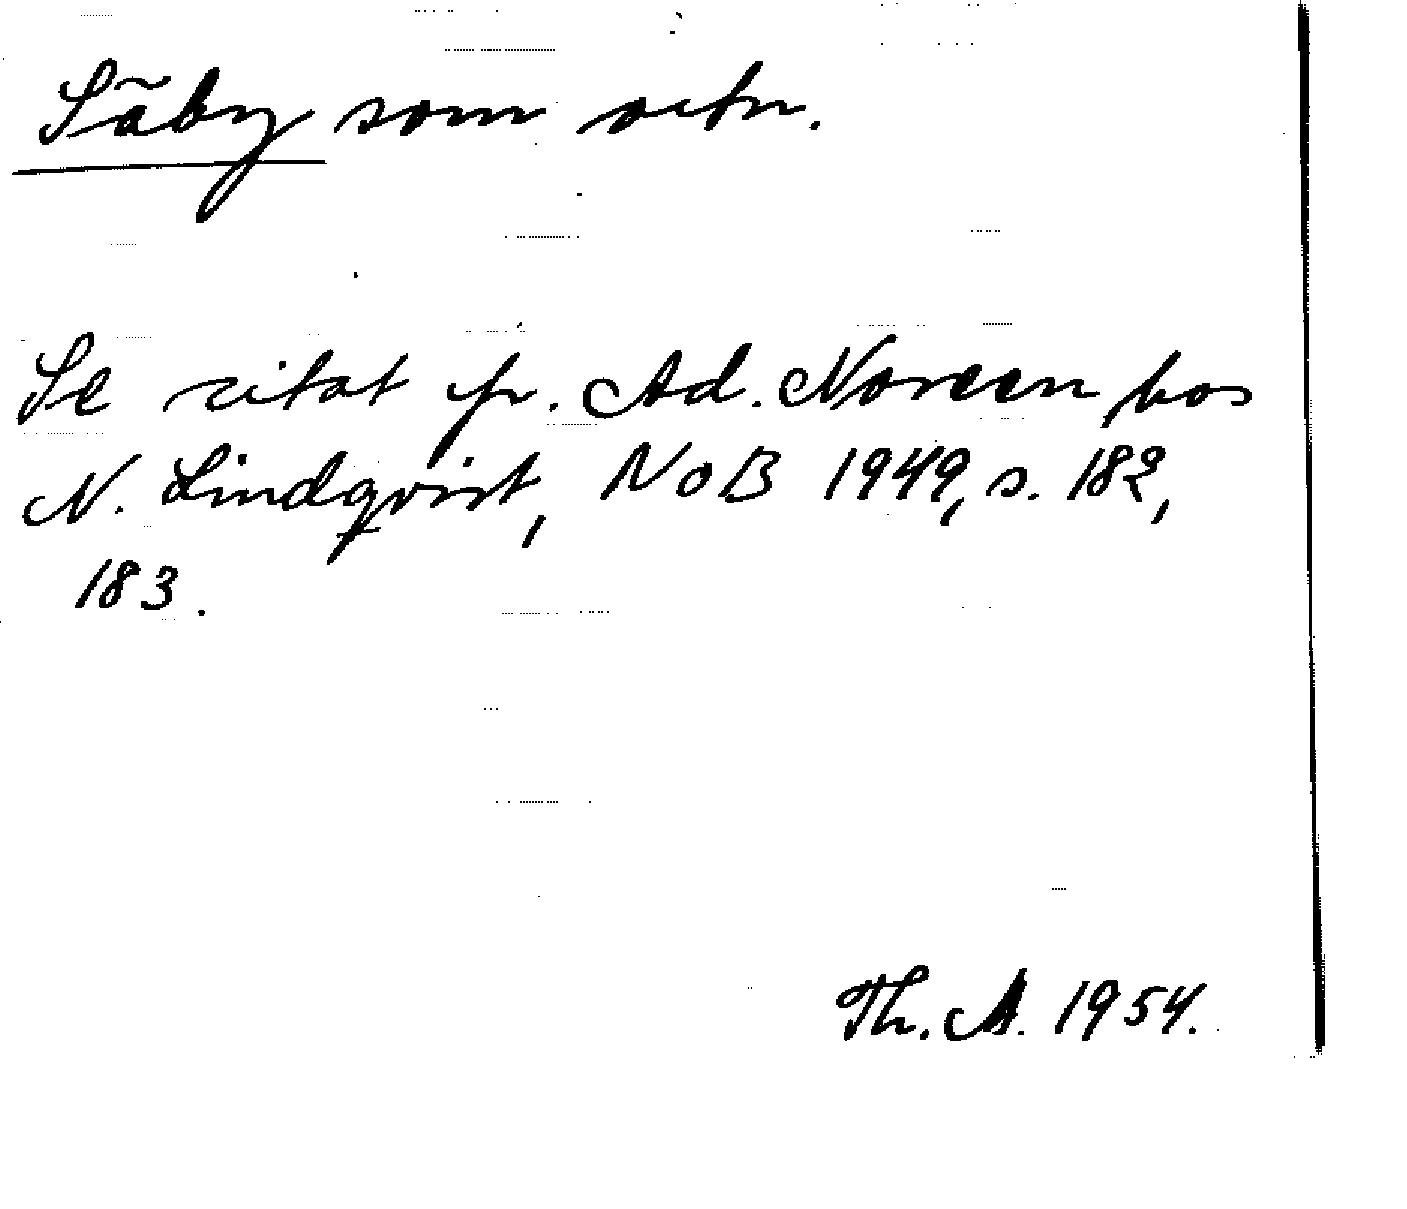 Säby som ortn.
Se citat fr. Ad. Noreen hos
N. Lindqvist, NoB 1949, s. 182,
183.
Th. A. 1954.